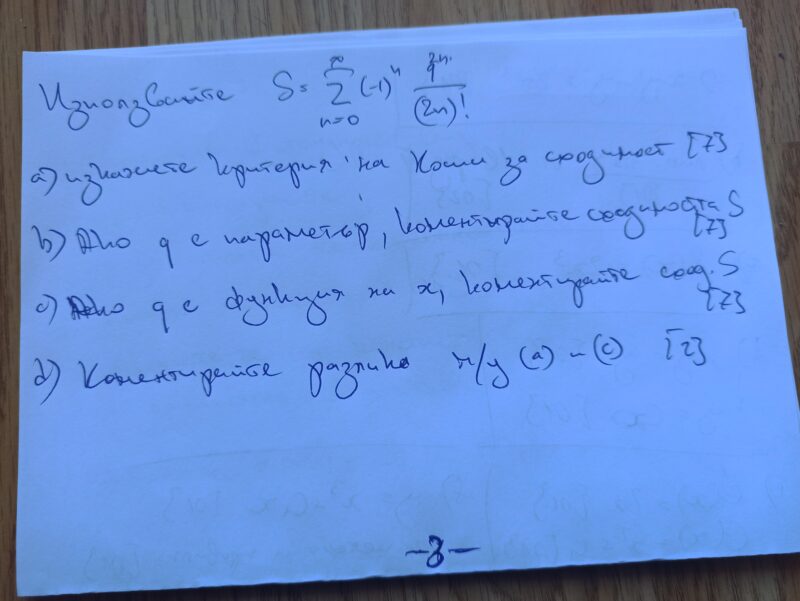 Използвайте S = ∞ Σ n=0 (-1)^n q^2n / (2n)!
a) изкажете критерия на Коши за сходимост [7]
b) Ако q е параметър, коментирайте сходимостта S [7]
c) Ако q е функция на x, коментирайте сход. S [7]
d) Коментирайте разлика м/у (a) и (c) [2]
-3-